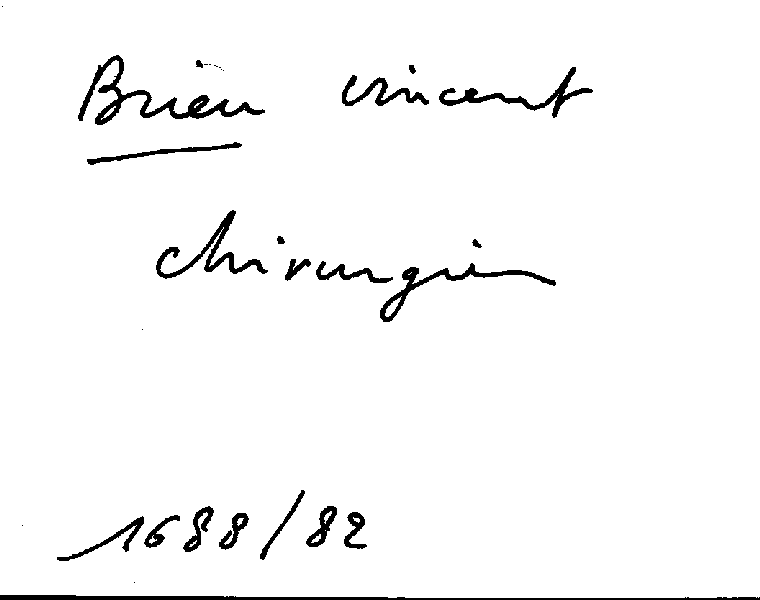 Brieu vincent
chirurgien
1688/82